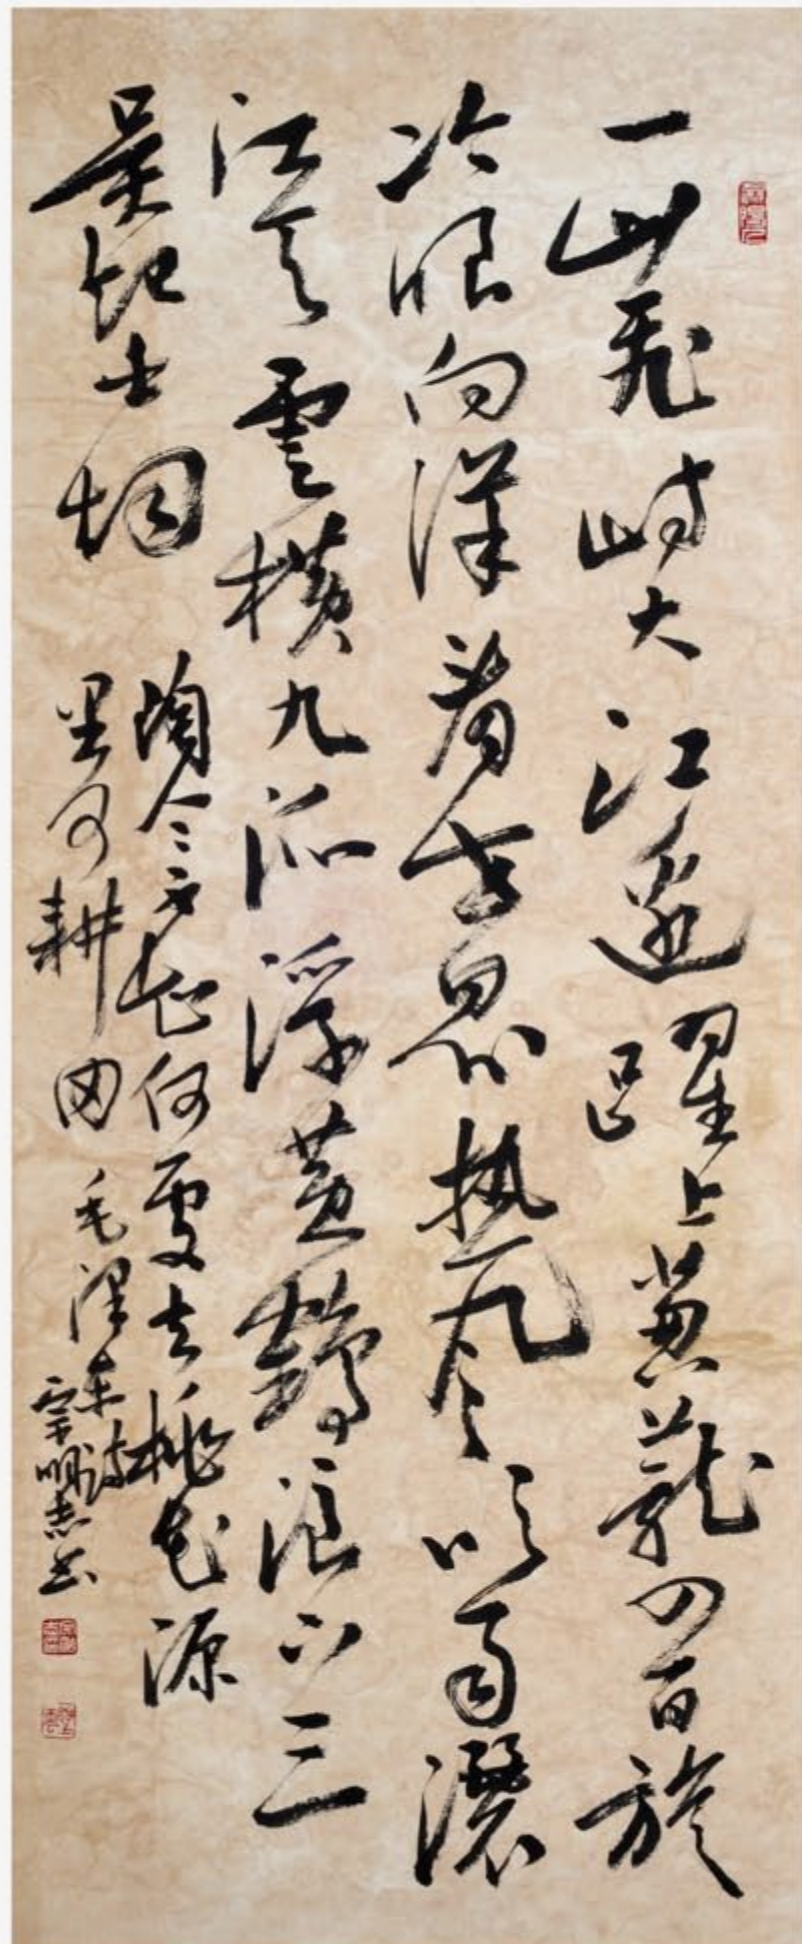 一山飛峙大江邊躍上葱蘢四百旋
冷眼向洋看世界热風吹雨灑
江天雲横九派浮黄鶴浪下三
吴起白烟
陶令不知何處去桃花源
里可耕田 毛澤東詩
明志书